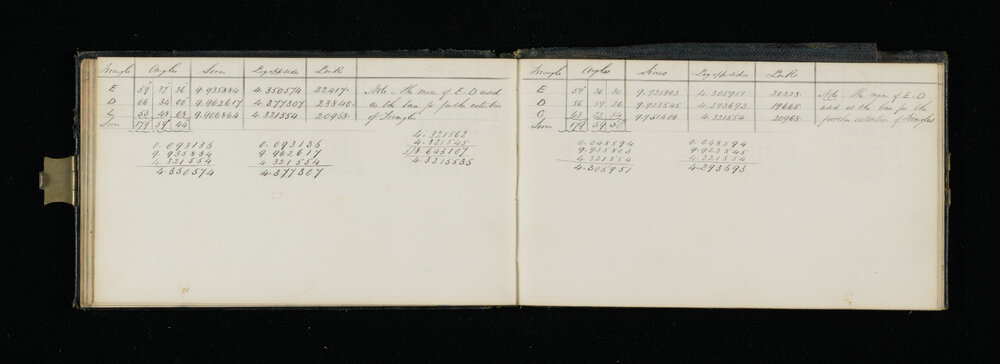 Triangle Angles Sines Log opp sides Links
E 59° 37' 36 9.935884 4.350574 22417. Note - the mean of E. D used
D 66 34 00 9.962617 4.377307 23840. as the base for further extension
C 53 48 08 9.906864 4.321554 20968. of Triangles
Sum 179 59 44
4.321562
4.321545
2)8.643107
4.3215535
0.093136 0.093136
9.935884 9.962617
4.321554 4.321554
4.350574 4.377307
Triangle Angles Sines Log opp sides Links
E 59° 36 30 9.935803 4.305951 20228. Note - the mean of E. D
D 56 59 26 9.923545 4.293693 19665. used as the base for the
C 63 23 54 9.951406 4.321554 20968. further extension of Triangles
Sum 179 59 50
0.048594 0.048594
9.935803 9.923545
4.321554 4.321554
4.305951 4.293693